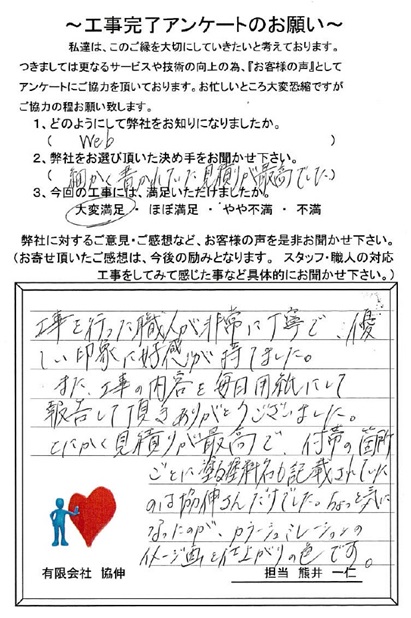 ～工事完了アンケートのお願い～
私達は、このご縁を大切にしていきたいと考えております。
つきましては更なるサービスや技術の向上の為、『お客様の声』として
アンケートにご協力を頂いております。お忙しいところ大変恐縮ですが
ご協力の程お願い致します。
1、どのようにして弊社をお知りになりましたか。
( Web )
2、弊社をお選び頂いた決め手をお聞かせ下さい。
( 細かく書かれていた見積りが最高でした )
3、今回の工事には、満足いただけましたか。
大変満足 ・ ほぼ満足 ・ やや不満 ・ 不満
弊社に対するご意見・ご感想など、お客様の声を是非お聞かせ下さい。
(お寄せ頂いたご感想は、今後の励みとなります。 スタッフ・職人の対応
工事をしてみて感じた事など具体的にお聞かせ下さい。)
工事を行った職人が非常に丁寧で、優
しい印象に好感が持てました。
また、工事の内容を毎日用紙にして
報告して頂きありがとうございました。
とにかく見積りが最高で、付帯の箇所
ごとに塗料名も記載されていた
のは協伸さんだけでした。ちょっと気に
なったのが、カラーシュミレーションの
イメージ画と仕上がりの色です。
有限会社 協伸
担当 熊井 一仁